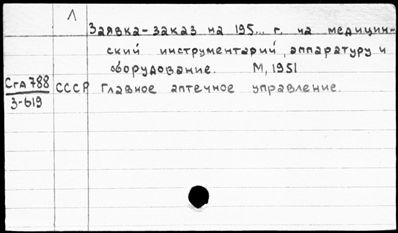 Л
Заявка-заказ на 195... г. на медицин-
ский инструментарий, аппаратуру и
оборудование. М, 1951
СгА 788
3-619
СССР Главное аптечное управление.